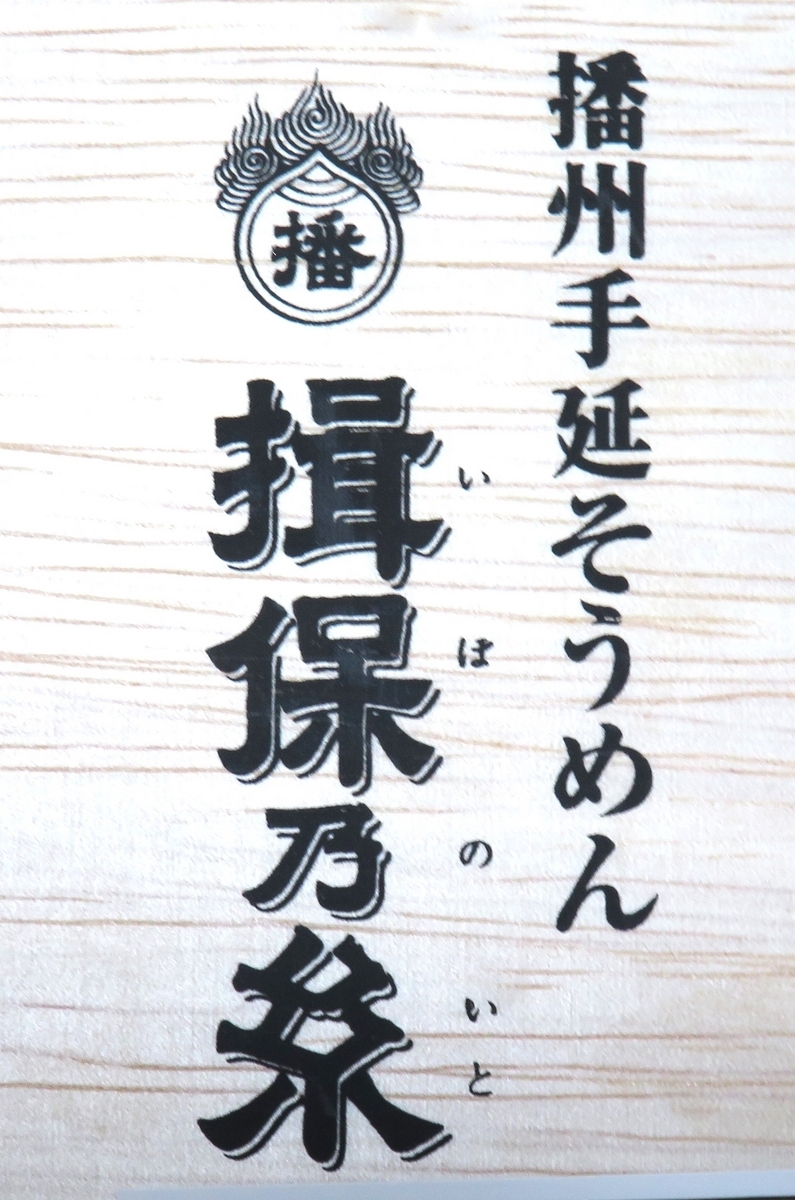 播州手延そうめん
播
揖保乃糸
いぼのいと